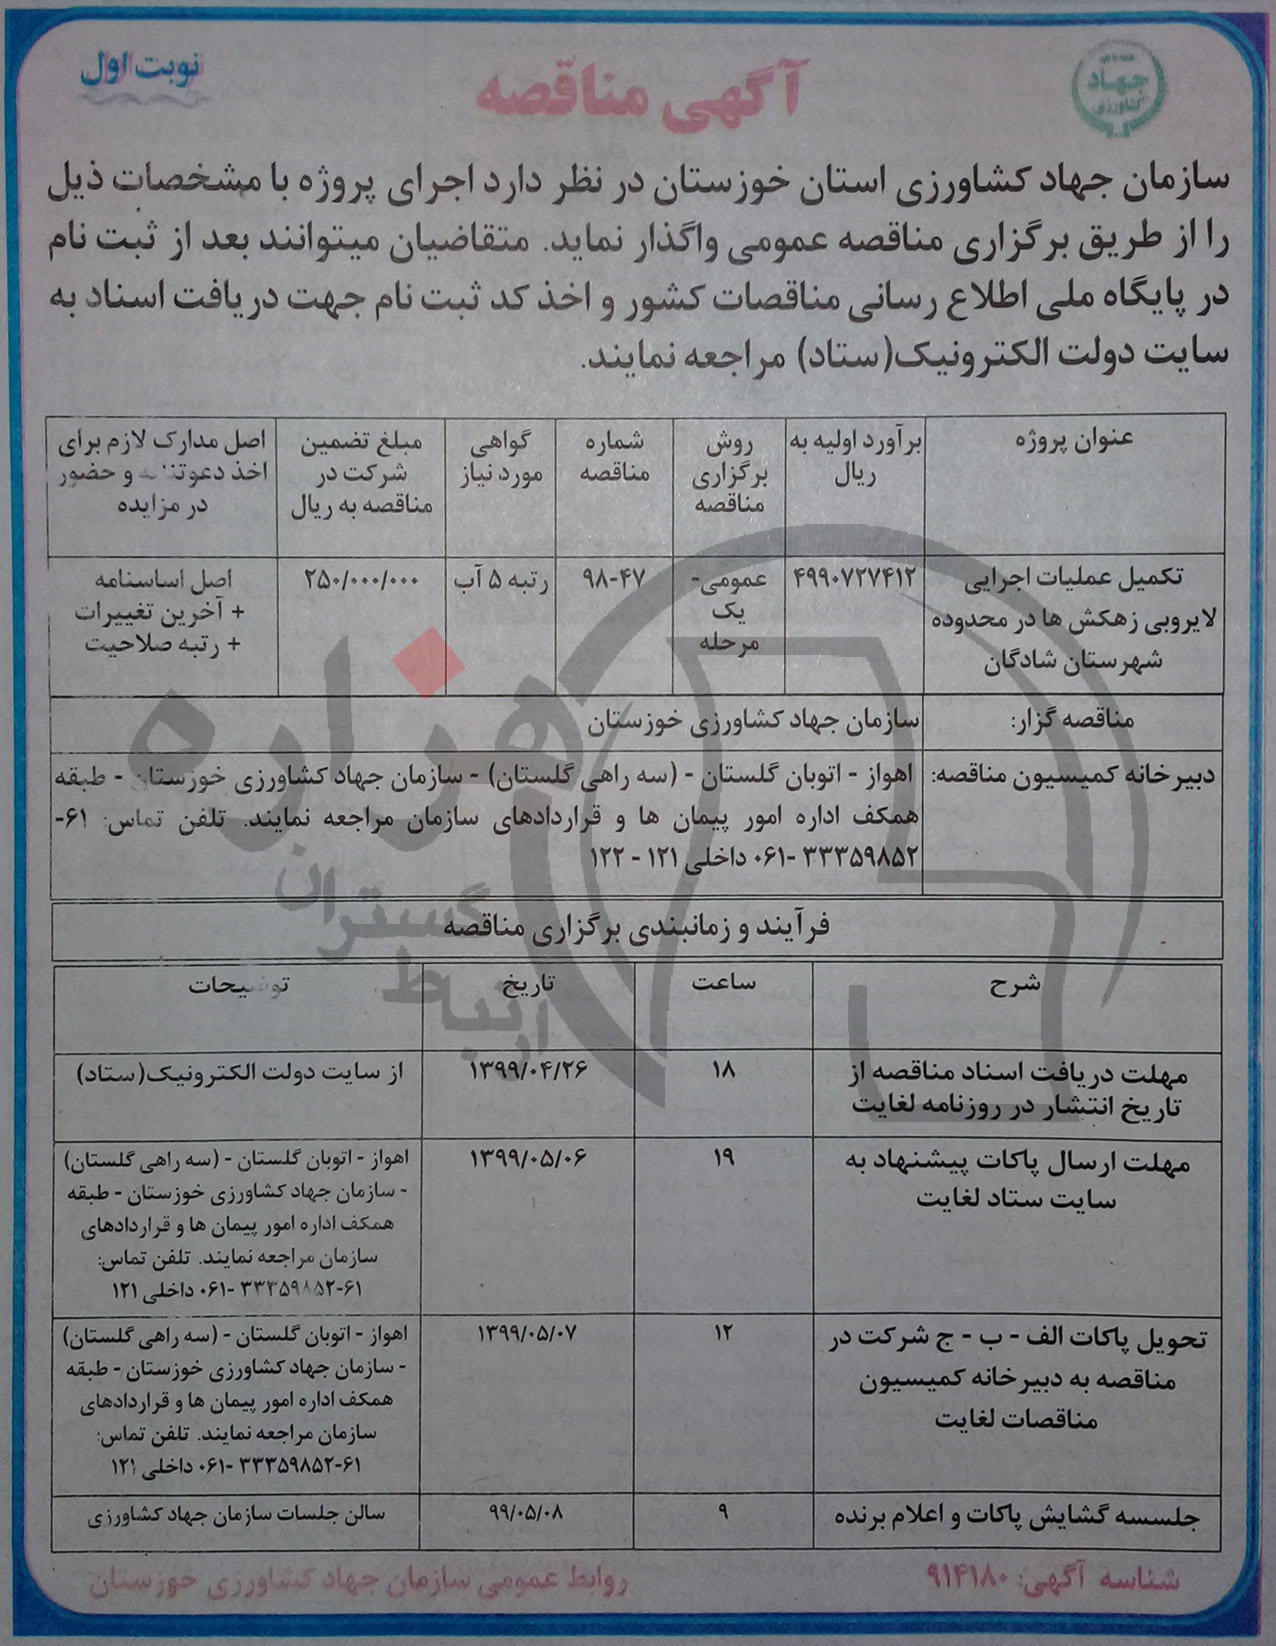 جهاد
کشاورزی
آگهی مناقصه
نوبت اول
سازمان جهاد کشاورزی استان خوزستان در نظر دارد اجرای پروژه با مشخصات ذیل
را از طریق برگزاری مناقصه عمومی واگذار نماید. متقاضیان میتوانند بعد از ثبت نام
در پایگاه ملی اطلاع رسانی مناقصات کشور و اخذ کد ثبت نام جهت دریافت اسناد به
سایت دولت الکترونیک(ستاد) مراجعه نمایند.
عنوان پروژه
برآورد اولیه به
ریال
روش
برگزاری
مناقصه
شماره
مناقصه
گواهی
مورد نیاز
مبلغ تضمین
شرکت در
مناقصه به ریال
اصل مدارک لازم برای
اخذ دعوتنامه و حضور
در مزایده
تکمیل عملیات اجرایی
لایروبی زهکش ها در محدوده
شهرستان شادگان
۴۹۹۰۷۲۷۴۱۲
عمومی-
یک
مرحله
۹۸-۴۷
رتبه ۵ آب
۲۵۰/۰۰۰/۰۰۰
اصل اساسنامه
+ آخرین تغییرات
+ رتبه صلاحیت
مناقصه گزار:
سازمان جهاد کشاورزی خوزستان
دبیرخانه کمیسیون مناقصه:
اهواز - اتوبان گلستان - (سه راهی گلستان) - سازمان جهاد کشاورزی خوزستان - طبقه
همکف اداره امور پیمان ها و قراردادهای سازمان مراجعه نمایند. تلفن تماس: ۶۱-
۳۳۳۵۹۸۵۲ -۰۶۱ داخلی ۱۲۱ - ۱۲۲
فرآیند و زمانبندی برگزاری مناقصه
شرح
ساعت
تاریخ
توضیحات
مهلت دریافت اسناد مناقصه از
تاریخ انتشار در روزنامه لغایت
۱۸
۱۳۹۹/۰۴/۲۶
از سایت دولت الکترونیک(ستاد)
مهلت ارسال پاکات پیشنهاد به
سایت ستاد لغایت
۱۹
۱۳۹۹/۰۵/۰۶
اهواز - اتوبان گلستان - (سه راهی گلستان)
- سازمان جهاد کشاورزی خوزستان - طبقه
همکف اداره امور پیمان ها و قراردادهای
سازمان مراجعه نمایند. تلفن تماس:
۶۱-۳۳۳۵۹۸۵۲ -۰۶۱ داخلی ۱۲۱
تحویل پاکات الف - ب - ج شرکت در
مناقصه به دبیرخانه کمیسیون
مناقصات لغایت
۱۲
۱۳۹۹/۰۵/۰۷
اهواز - اتوبان گلستان - (سه راهی گلستان)
- سازمان جهاد کشاورزی خوزستان - طبقه
همکف اداره امور پیمان ها و قراردادهای
سازمان مراجعه نمایند. تلفن تماس:
۶۱-۳۳۳۵۹۸۵۲ -۰۶۱ داخلی ۱۲۱
جلسسه گشایش پاکات و اعلام برنده
۹
۹۹/۰۵/۰۸
سالن جلسات سازمان جهاد کشاورزی
شناسه آگهی: ۹۱۴۱۸۰
روابط عمومی سازمان جهاد کشاورزی خوزستان
هزاره
گستران
ارتباط